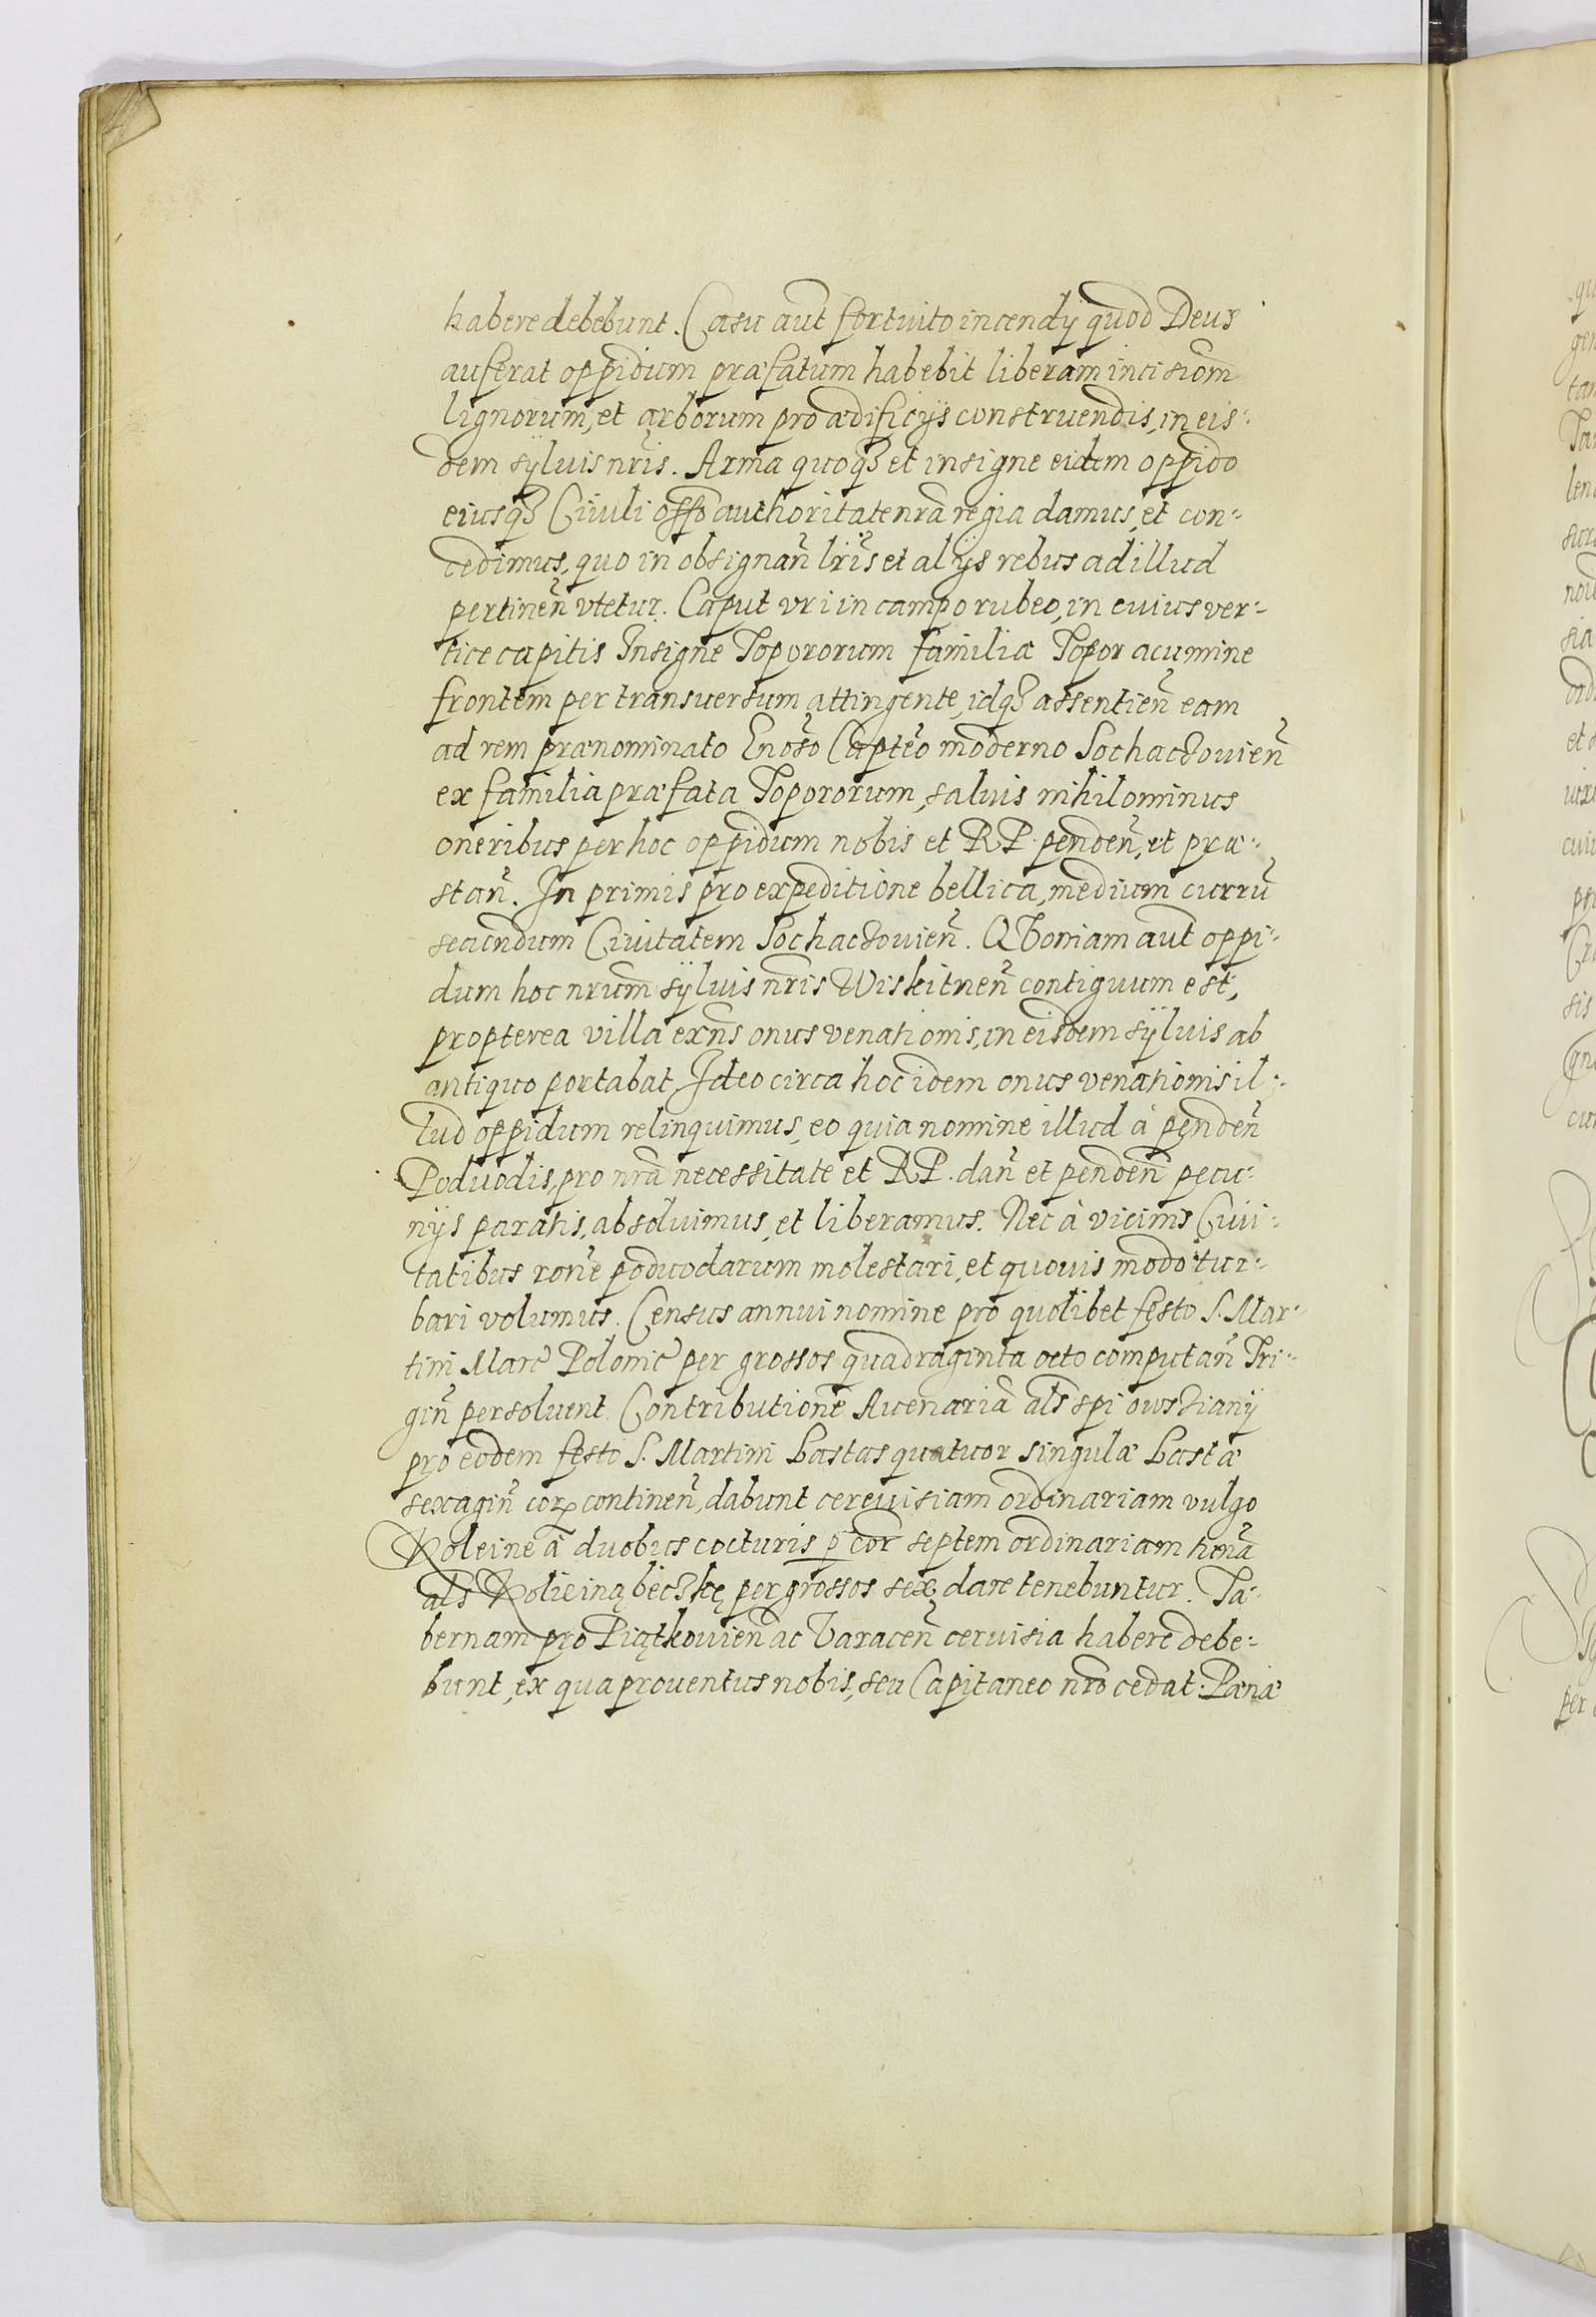 habere debebunt. Casu aut̃ fortuito incendij quod Deus
auferat oppidum præfatum habebit liberam incisiom̃
lignorum, et arborum pro ædificijs construendis, in eis-
dem sÿluis nr̃is. Arma quoqꝫ et insigne eidem oppido
eiusqꝫ Ciuili offo authoritate nr̃a regia damus, et con-
cedimus, quo in obsignan̄ lr̃is et alijs rebus ad illud
pertinen̄ vtetur. Caput vri in campo rubeo, in cuius ver-
tice capitis Insigne Topororum familiæ Topor acumine
frontem per transuersum attingente, idqꝫ assentien̄ eam
ad rem prænominato Gnoso Capteo moderno Sochaczouien̄
ex familia præfata Topororum, saluis nihilominus
oneribus per hoc oppidum nobis et RP. penden̄, et præ-
stan̄. In primis pro expeditione bellica, medium currū
secundum Ciuitatem Sochaczouien̄. Qvoniam aut̃ oppi-
dum hoc nrum̃ sÿluis nr̃is Wiskitnen̄ contiguum est,
propterea villa exñs onus venationis, in eisdem sÿluis ab
antiquo portabat, Ideo circa hoc idem onus venationis il-
lud oppidum relinquimus, eo quia nomine illud à penden̄
Podvodis, pro nr̃a necessitate et RP. dan̄ et penden̄ pecu-
nijs paratis, absoluimus, et liberamus. Nec à vicinis Ciui-
tatibus ron̄e podwodarum molestari, et quouis modo tur-
bari volumus. Census annui nomine pro quolibet festo S. Mar-
tini Marc̃ Polonic̃ per grossos quadraginta octo computan̄ Tri-
gin̄ persoluent. Contributionē Auenariā als spi owsianÿ
pro eodem festo S. Martini Lastas quatuor singulæ Lastæ
sexagin̄ cor continen̄, dabunt cereuisiam ordinariam vulgo
Koleine à duobus cocturis p cor septem ordinariam
als Kolieiną beczkę per grossos sex dare tenebuntur. Ta-
bernam pro Piątkouien̄ ac Varacen̄ ceruisia habere debe-
bunt, ex qua prouentus nobis, seu Capitaneo nr̃o cedat. Pænæ